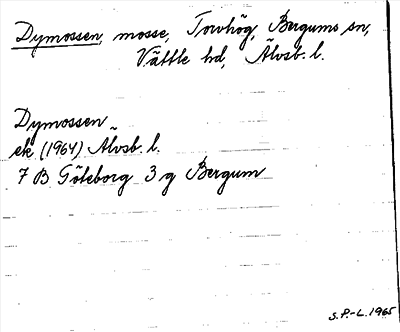 Dymossen, mosse, Torvhög, Bergums sn,
Vättle hd, Älvsb. l.
Dymossen
ek (1964) Älvsb. l.
7 B Göteborg 3 g Bergum
S.P.-L. 1965